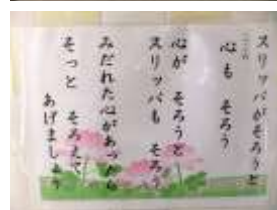 スリッパがそろうと
心も そろう
心が そろうと
スリッパも そろう
みだれた心があったら
そっと そろえて
あげましょう